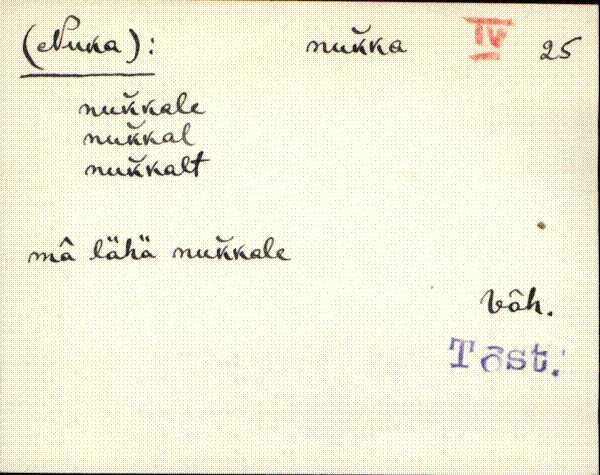 (Nuka): nuk̆ka IV 25
nuk̆kale
nuk̆kal
nuk̆kalt
mâ lähä nuk̆kale
Vôh.
Tõst.